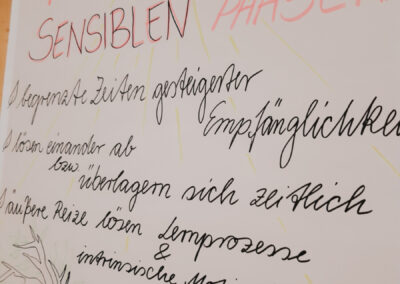 SENSIBLEN PHASEN
begrenzte Zeiten gesteigerter
Empfänglichkei
lösen einander ab
bzw überlagern sich zeitlich
äußere Reize lösen Lernprozesse
&
intrinsische